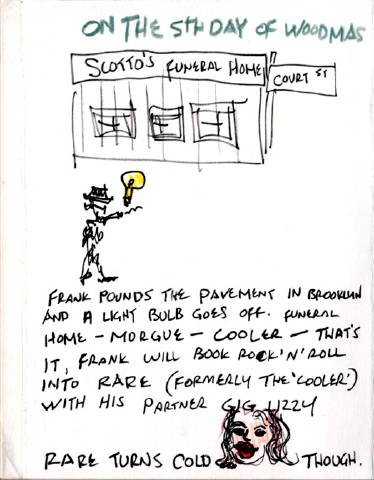 ON THE 5TH DAY OF WOODMAS
SCOTTO'S FUNERAL HOME
COURT ST
FRANK POUNDS THE PAVEMENT IN BROOKLYN
AND A LIGHT BULB GOES OFF. FUNERAL
HOME - MORGUE - COOLER - THAT'S
IT, FRANK WILL BOOK ROCK'N'ROLL
INTO RARE (FORMERLY THE 'COOLER')
WITH HIS PARTNER GIG LIZZY
RARE TURNS COLD THOUGH.